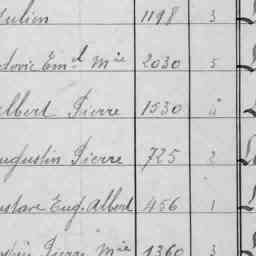 Julien 1198 3
dovic Em.l Mie 2030 5
Albert Pierre 1530 4
Augustin Pierre 725 2
ustave Eug. Albert 456 1
Pierre Mie 1360 3